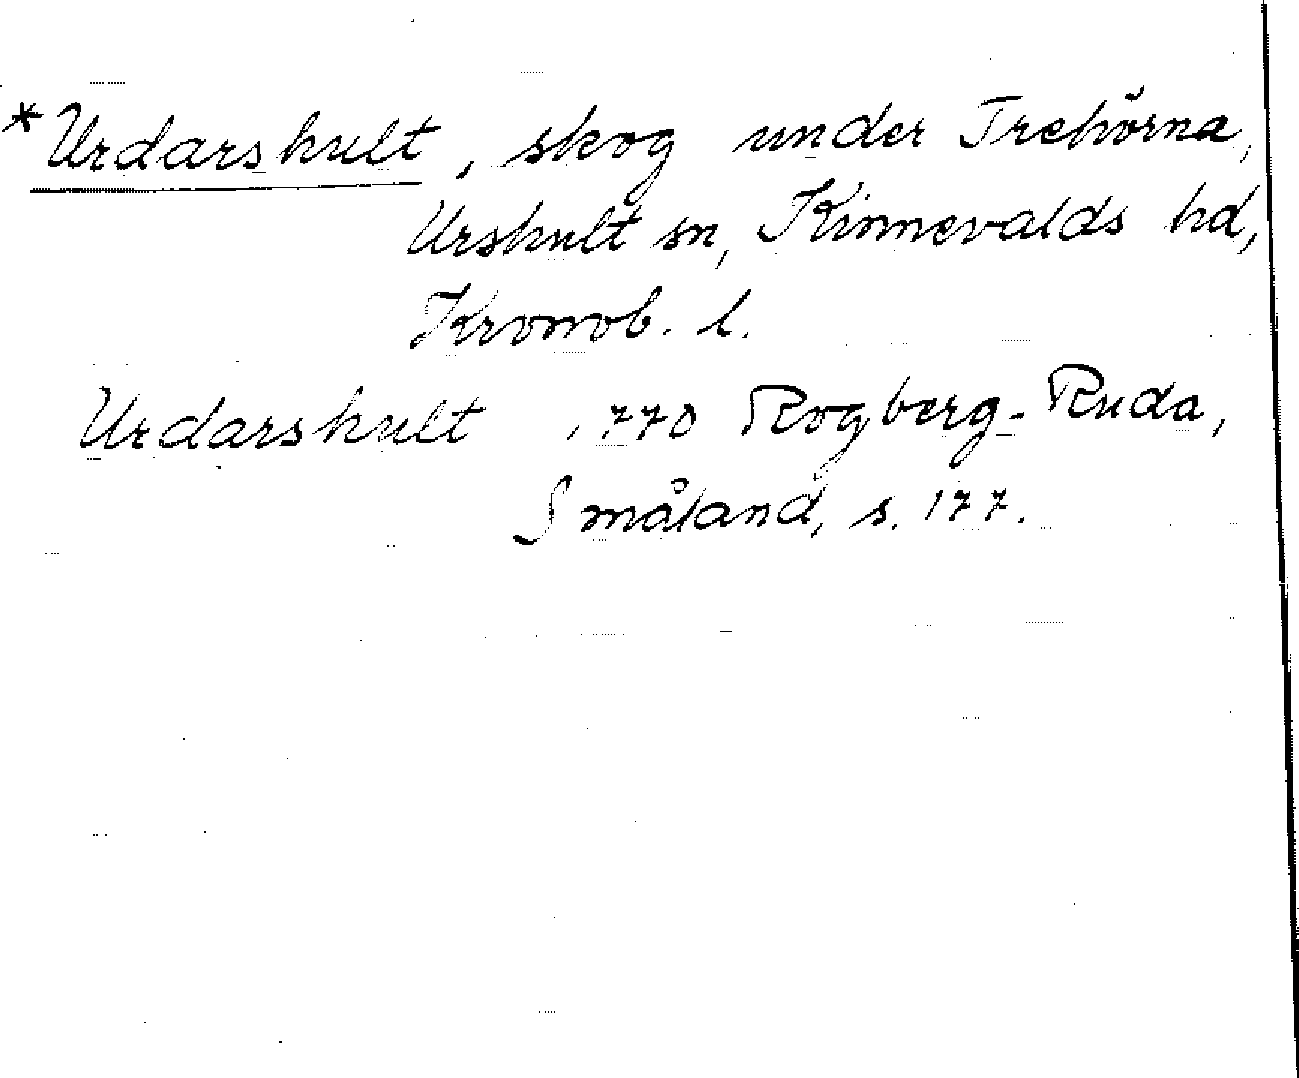 *Urdarshult, skog under Trehörna,
Urshult sn, Kinnevalds hd,
Kronob. l.
Urdarshult 1770 Rogberg-Ruda,
Småland, s. 177.